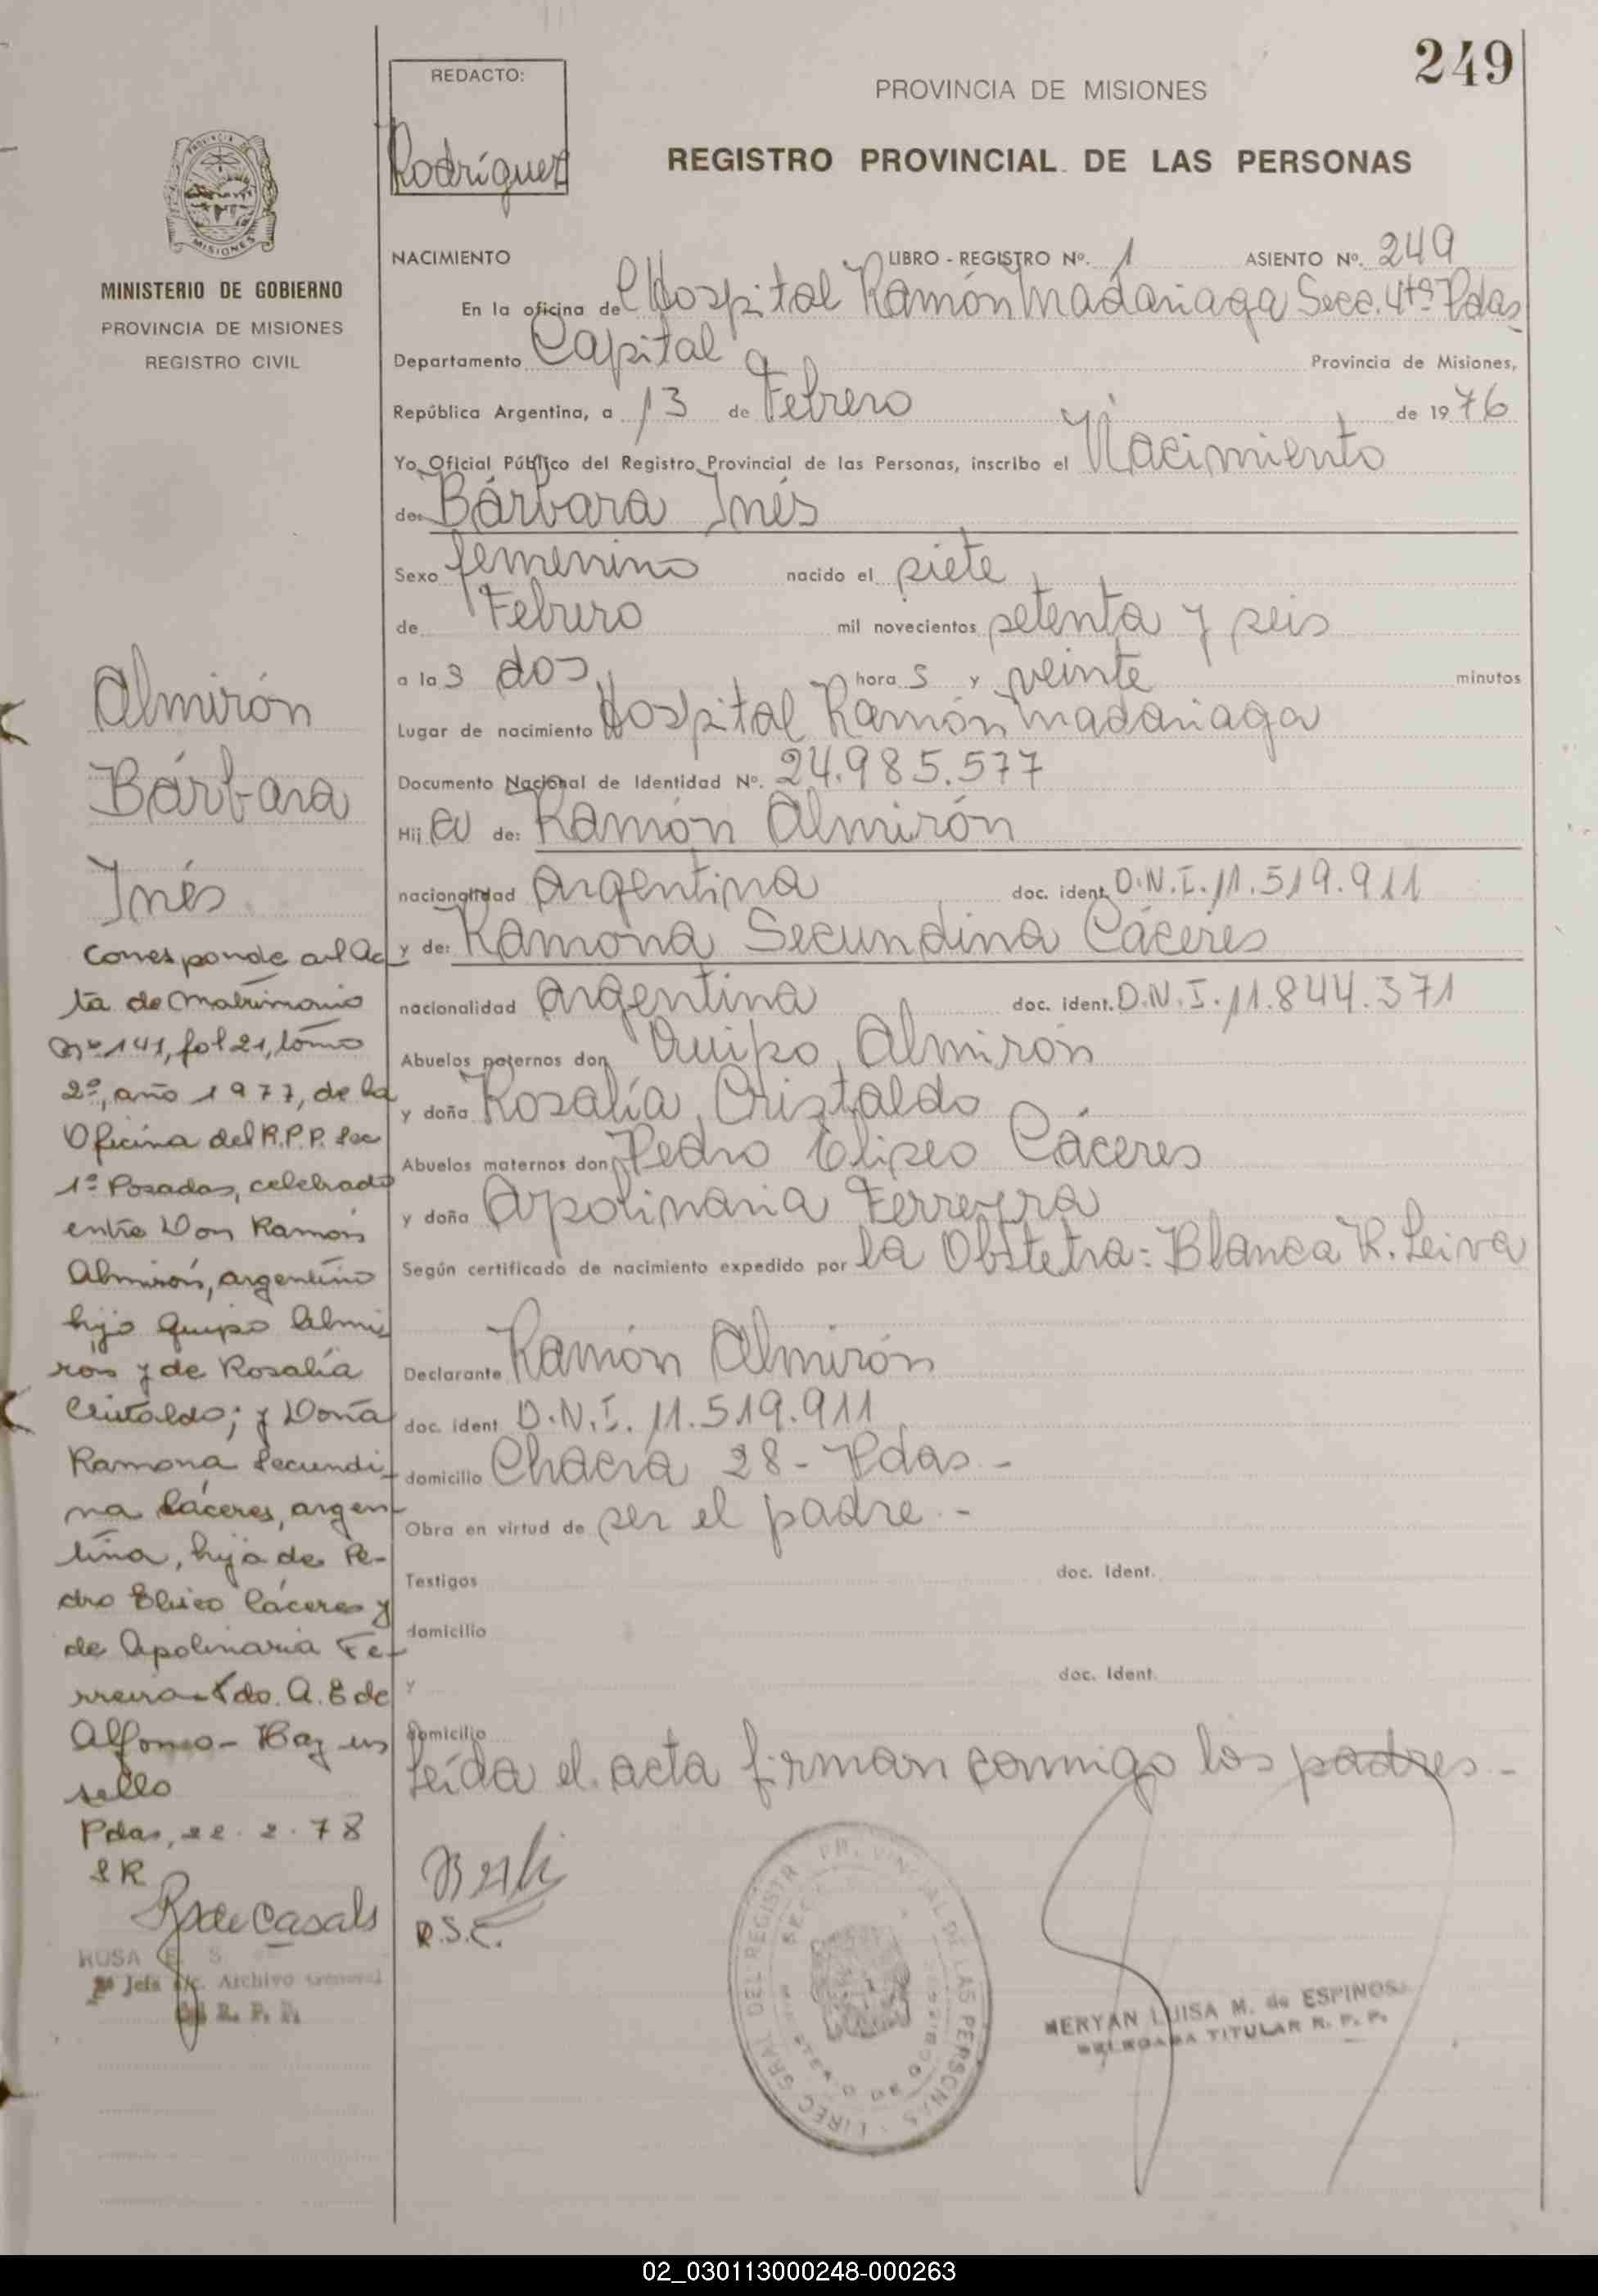 249
REDACTO:
Rodríguez
PROVINCIA DE MISIONES
REGISTRO PROVINCIAL DE LAS PERSONAS
MISIONES
MINISTERIO DE GOBIERNO
PROVINCIA DE MISIONES
REGISTRO CIVIL
NACIMIENTO LIBRO - REGISTRO Nº. 1 ASIENTO Nº. 249
En la oficina de Hospital Ramón Madariaga Secc. 4ta Pdas
Departamento Capital Provincia de Misiones,
República Argentina, a 13 de Febrero de 1976
Yo Oficial Público del Registro Provincial de las Personas, inscribo el Nacimiento
de: Bárbara Inés
Sexo femenino nacido el siete
de Febrero mil novecientos setenta y seis
a las dos horas y veinte minutos
Lugar de nacimiento Hospital Ramón Madariaga
Documento Nacional de Identidad Nº. 24.985.577
Hija de: Ramón Almirón
nacionalidad Argentina doc. ident. D.N.I. 11.519.911
y de: Ramona Secundina Cáceres
nacionalidad Argentina doc. ident. D.N.I. 11.844.371
Abuelos paternos don Quipo Almirón
y doña Rosalía Cristaldo
Abuelos maternos don Pedro Eliseo Cáceres
y doña Apolinaria Ferreyra
Según certificado de nacimiento expedido por la Obstetra: Blanca R. Leiva
Declarante Ramón Almirón
doc. ident. D.N.I. 11.519.911
domicilio Chacra 28 - Pdas -
Obra en virtud de ser el padre. -
Testigos doc. ident.
domicilio
y doc. ident.
domicilio
Leída el acta firman conmigo los padres -
Almirón
Bárbara
Inés
Corresponde al Ac
ta de Matrimonio
Nº 141, fol 21, tomo
2º, año 1977, de la
Oficina del R.P.P. Sec
1ª Posadas, celebrado
entre Don Ramón
Almirón, argentino
hijo Quipo Almi
rón y de Rosalía
Cristaldo; y Doña
Ramona Secundi
na Cáceres, argen
tina, hija de Pe-
dro Eliseo Cáceres y
de Apolinaria Fe-
rreira - Fdo. A. E de
Alfonso - Hay un
sello
Pdas, 22. 2. 78
ROSA E. S.
Jefa a/c. Archivo General
del R. P. P.
R.S.C.
DIREC GRAL DEL REGISTR. PROVINCIAL DE LAS PERSONAS
MERYAN LUISA M. de ESPINOSA
DELEGADA TITULAR R. P. P.
02_030113000248-000263